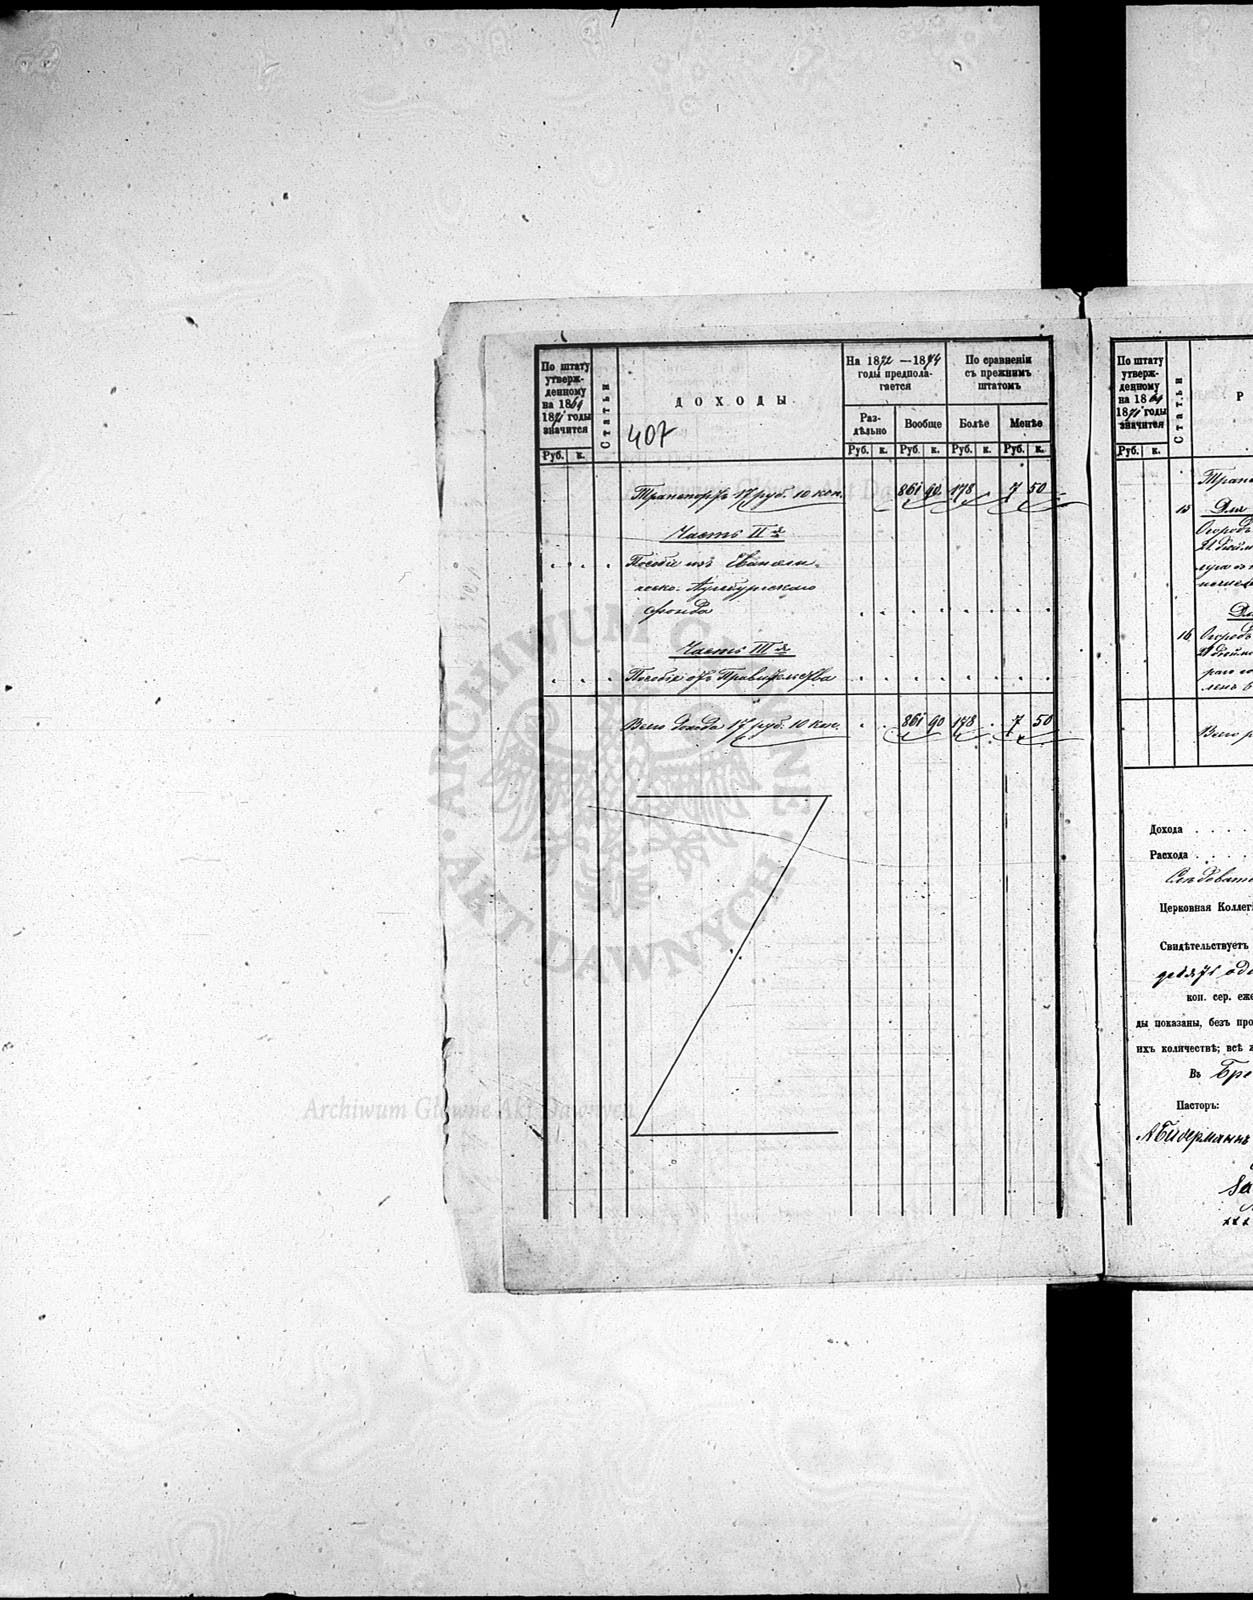 По штату
утверж-
денному
на 1869
1871 годы
значится
Статьи
ДОХОДЫ.
407
На 1872 — 1874
годы предпола-
гается
По сравненіи
съ прежнимъ
штатомъ
Раз-
дѣльно
Вообще
Болѣе
Менѣе
Руб. к.
Руб. к. Руб. к. Руб. к. Руб. к.
Транспортъ 17 руб. 10 коп. 861 90 178 7 50
Часть II я
Пособіе изъ Евангели-
ческо-Аугсбургскаго
фонда
Часть III я
Пособіе отъ Правительства
Всего дохода 17 руб. 10 коп. 861 90 178 7 50
По штату
утверж-
денному
на 1869
1871 годы
значится
Статьи
Р
Руб. к.
Транс
15 Для
Огородъ
16 Огородъ
Всего р
Дохода . . . .
Расхода . . . .
Церковная Коллегі
Свидѣтельствуетъ
коп. сер. еже
ды показаны, безъ про
ихъ количествѣ; всѣ
Въ Бре
Пасторъ:
xxx
ARCHIWUM GŁÓWNE AKT DAWNYCH
Archiwum Główne Akt Dawnych